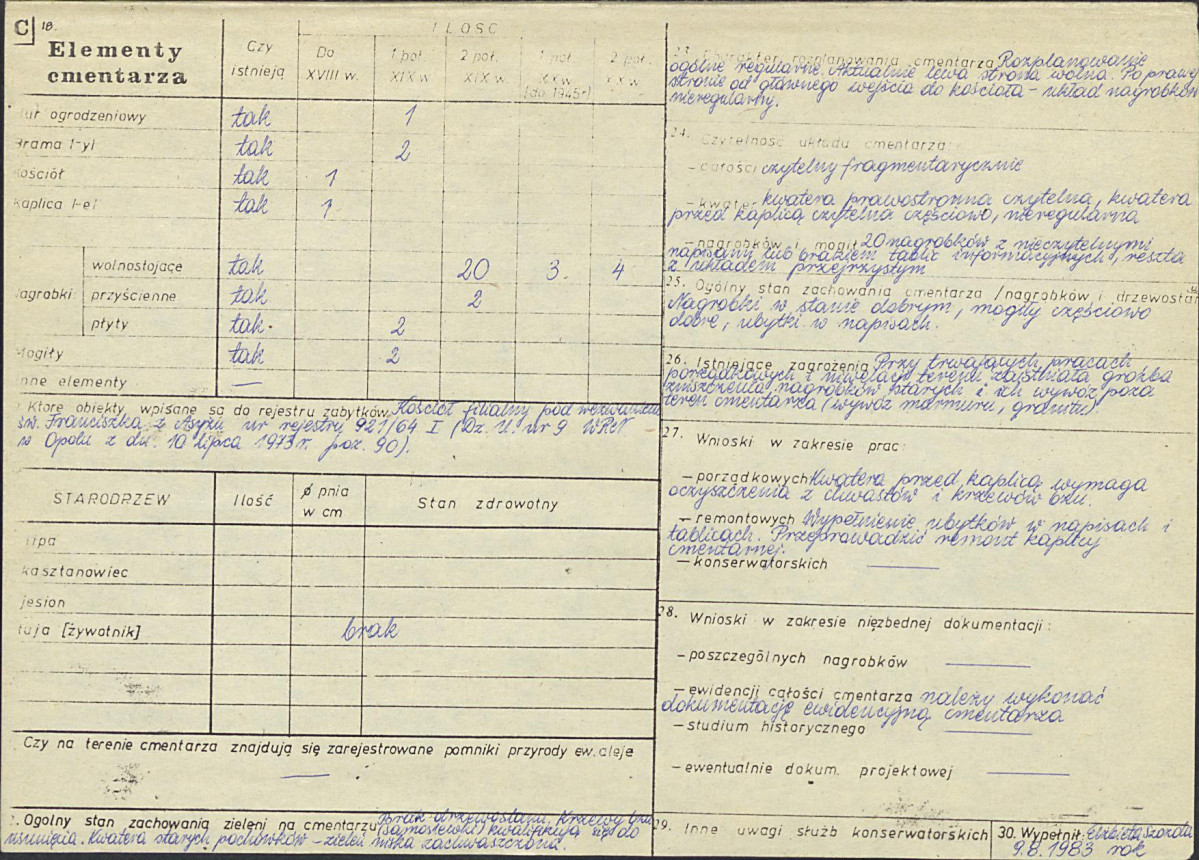 C 18.
Elementy
cmentarza
Czy
istnieją
ILOŚĆ
Do
XVIII w.
1 poł.
XIX w
2 poł.
XIX w.
1 poł.
XX w.
(do 1945r)
2 poł.
XX w
Mur ogrodzeniowy tak 1
Brama 1-yl tak 2
Kościół tak 1
Kaplica 1-el tak 1
Nagrobki
wolnostojące tak 20 3. 4
przyścienne tak 2
płyty tak. 2
Mogiły tak 2
Inne elementy —
Które obiekty wpisane są do rejestru zabytków Kościół filialny pod wezwaniem
św. Franciszka z Asyżu nr rejestru 921/64 I (Dz. U. nr 9 WRN
w Opolu z dn. 10 lipca 1973 r. poz. 90).
STARODRZEW Ilość ø pnia
w cm Stan zdrowotny
lipa
kasztanowiec
jesion
tuja [żywotnik] brak
Czy na terenie cmentarza znajdują się zarejestrowane pomniki przyrody ew. aleje
—
Ogolny stan zachowania zieleni na cmentarzu Brak drzewostanu. Krzewy bzu
(samosiewki) kwalifikują się do
usunięcia. Kwatera starych pochówków – zieleń niska zachwaszczona.
23. Charakter rozplanowania cmentarza Rozplanowanie
ogólne regularne. Aktualnie lewa strona wolna. Po prawej
stronie od głównego wejścia do kościoła – układ nagrobków
nieregularny.
24. Czytelność układu cmentarza:
– całości czytelny fragmentarycznie
– kwater kwatera prawostronna czytelna, kwatera
przed kaplicą czytelna częściowo, nieregularna
– nagrobków i mogił 20 nagrobków z nieczytelnymi
napisami lub brakiem tablic informacyjnych, reszta
z układem przejrzystym
25. Ogólny stan zachowania cmentarza /nagrobków i drzewostan
Nagrobki w stanie dobrym, mogiły częściowo
dobre, ubytki w napisach.
26. Istniejące zagrożenia Przy trwających pracach
porządkowych i niwelacji terenu zaistniała groźba
zniszczenia nagrobków starych i ich wywóz poza
teren cmentarza (wywóz marmuru, granitu).
27. Wnioski w zakresie prac:
– porządkowych Kwatera przed kaplicą wymaga
oczyszczenia z chwastów i krzewów bzu.
– remontowych Wypełnienie ubytków w napisach i
tablicach. Przeprowadzić remont kaplicy
cmentarnej.
– konserwatorskich —
28. Wnioski w zakresie niezbednej dokumentacji:
– poszczególnych nagrobków —
– ewidencji całości cmentarza należy wykonać
dokumentację ewidencyjną cmentarza
– studium historycznego —
– ewentualnie dokum. projektowej —
29. Inne uwagi służb konserwatorskich
30. Wypełnił: Elżbieta Szorota
9.8.1983 rok